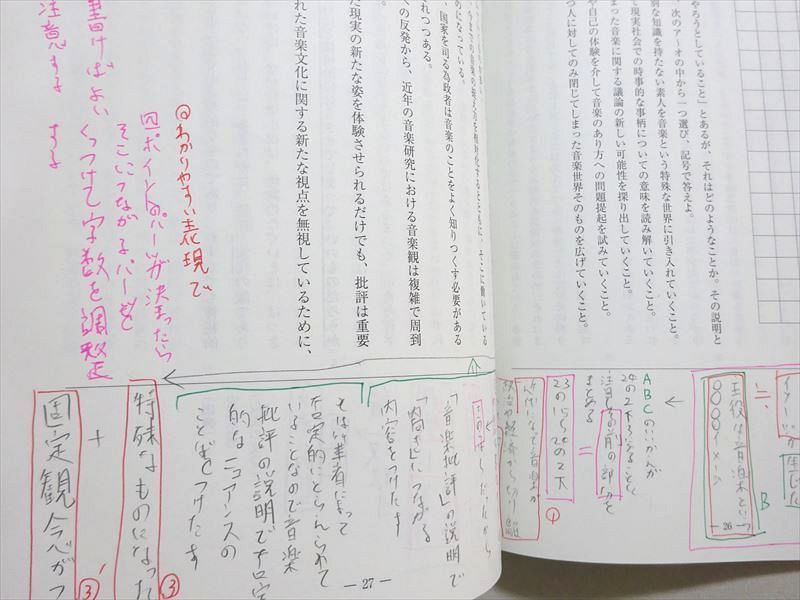 やろうとしていること」とあるが、それはどのようなことか。その説明と
次のア〜オの中から一つ選び、記号で答えよ。
別な知識を持たない素人を音楽という特殊な世界に引き入れていくこと。
て現実社会での時事的な事柄についての意味を読み解いていくこと。
まった音楽に関する議論の新しい可能性を探り出していくこと。
や自己の体験を介して音楽のあり方への問題提起を試みていくこと。
つ人に対してのみ閉じてしまった音楽世界そのものを広げていくこと。
主役は音楽という
〇〇〇〇イメージ
B
— 26 —
ABCのいいかんが
まとめる
23の15〜24の2下
①
のになっている。
、国家を司る為政者は音楽のことをよく知りつくす必要がある
れつつある。
への反発から、近年の音楽研究における音楽観は複雑で周到
た現実の新たな姿を体験させられるだけでも、批評は重要
れた音楽文化に関する新たな視点を無視しているために、
@わかりやすい表現で
四ポイントのパーツが決まったら
そこにつながるパーツを
くっつけて字数を調整
する
書けばよい
注意する
「音楽批評」の説明で
内容をつけたす
とは筆者によって
否定的にとらえられて
いることなので音楽
批評の説明で否定
的なニュアンスの
ことばをつけたす
特殊なものになった
③
+
固定観念がつ
③'
— 27 —